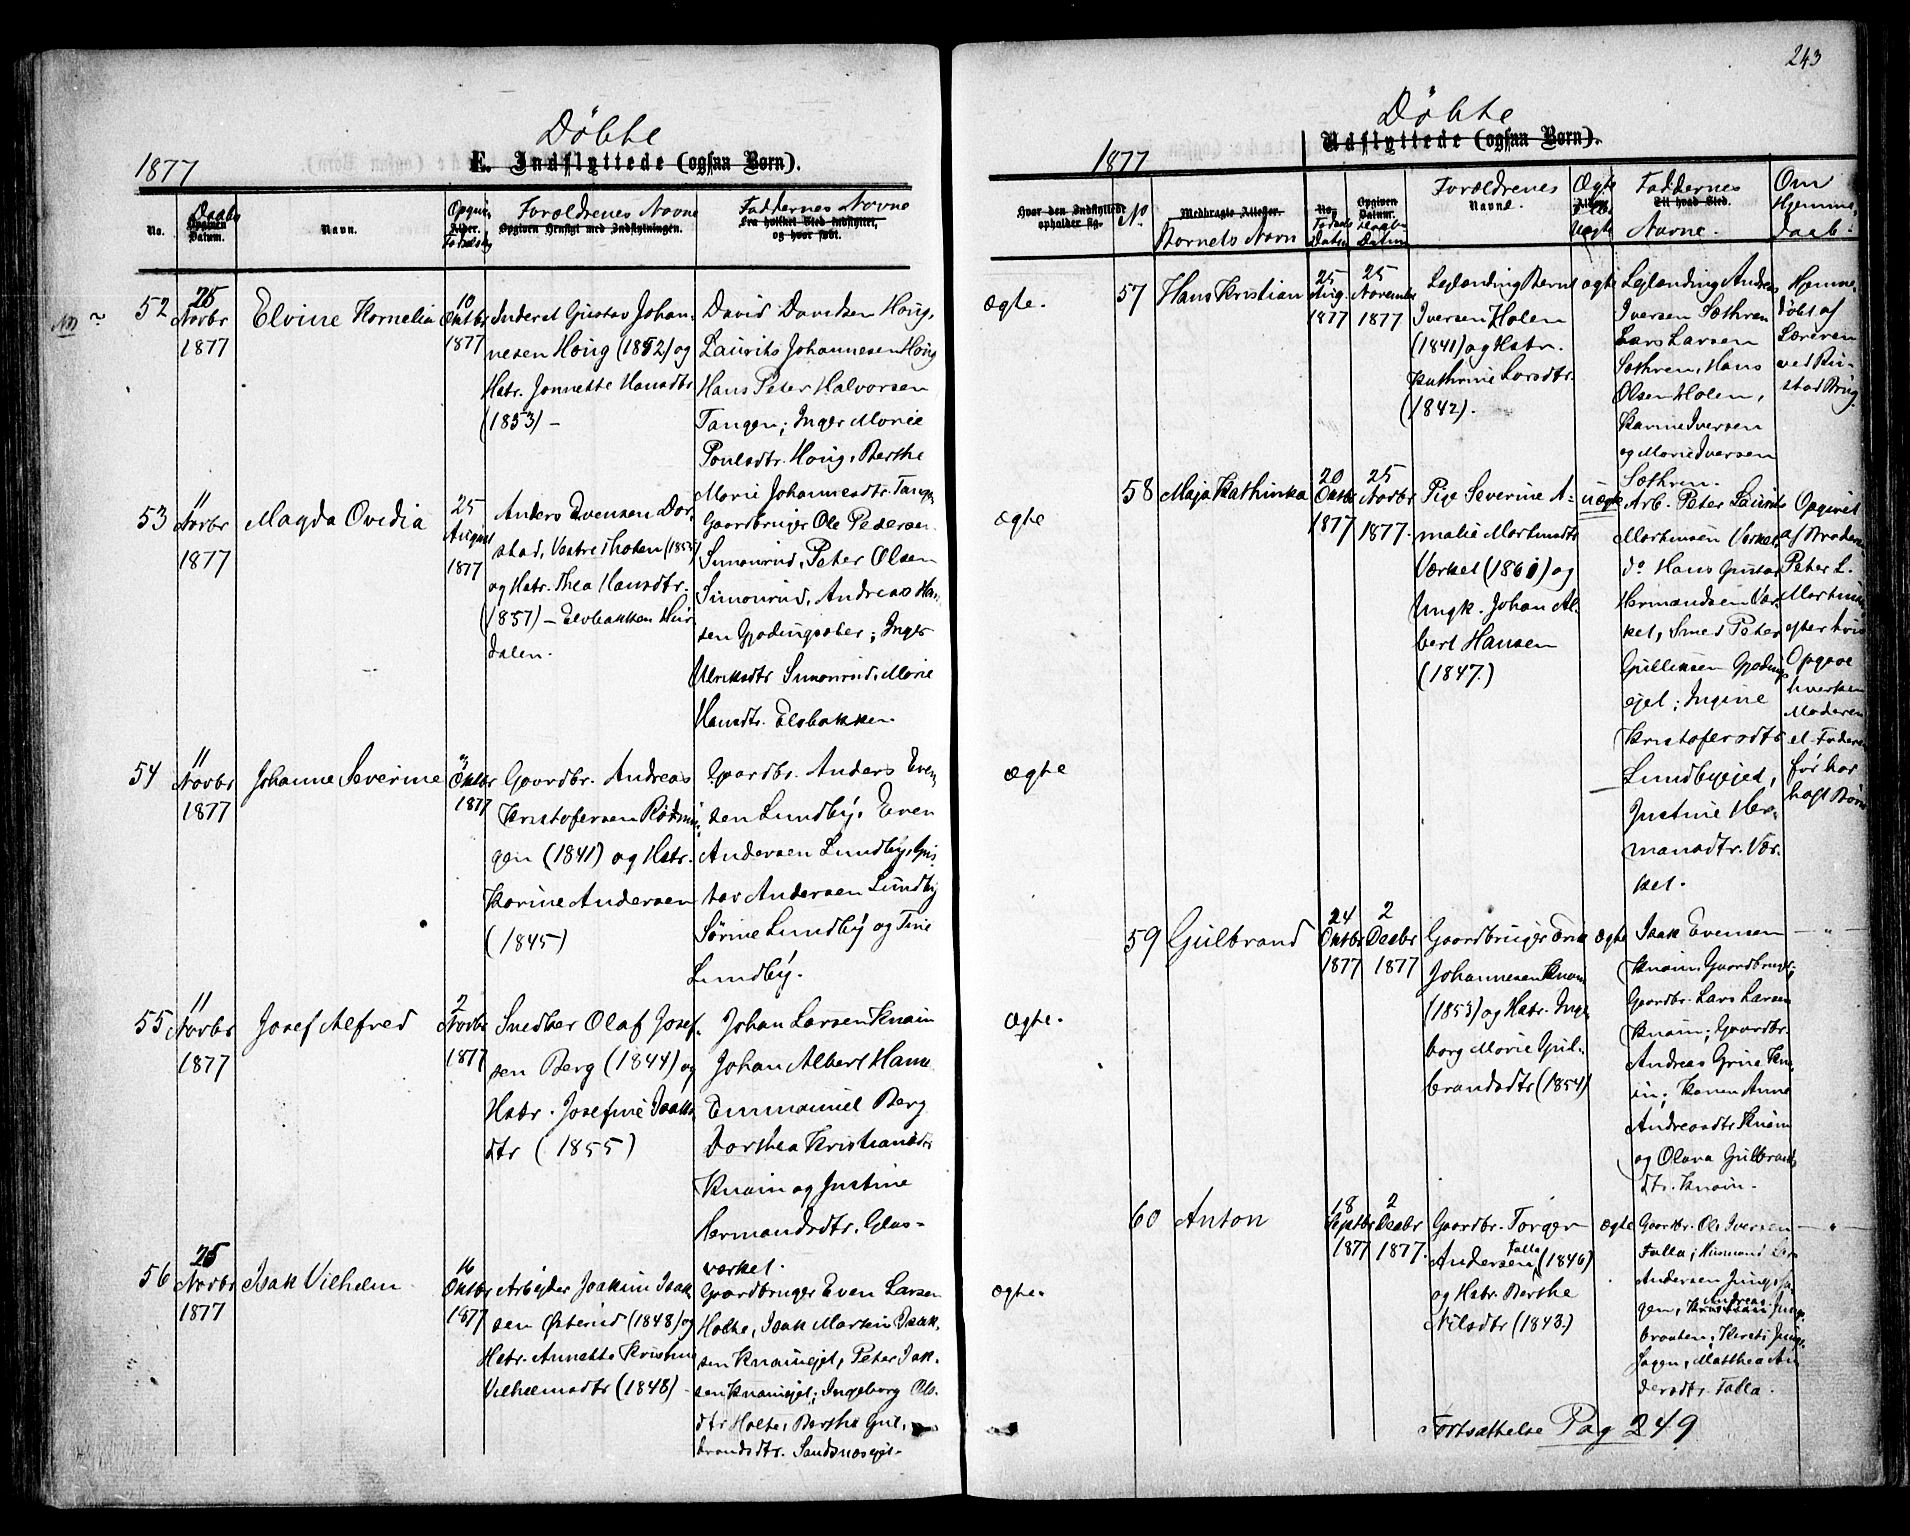 243
Döbte
1877
E. Indflyttede (ogsaa Børn).
Daabs
No.
Opgiven Datum.
Navn.
Opgiven Alder.
Forældrenes Navne
Opgiven Hensigt med Indflytningen.
Faddernes Navne
Fra hvilket Sted indflyttet,
og hvor født.
52
25
Novbr
1877
Elvine Kornelia
10
Oktbr
1877
Inderst Gustav Johan-
nesen Houg (1852) og
Hstr. Jonnette Hansdtr
(1853) –
David Davidsen Houg,
Laurits Johannesen Houg
Hans Peter Halvorsen
Tangen; Inger Marie
Poulsdtr. Houg, Berthe
Marie Johannesdtr. Tangen
ægte.
53
11
Novbr
1877
Magda Ovidia
25
August
1877
Anders Evensen Dor-
stad,
og Hstr. Thea Hansdtr.
(1857) – Elvbakken Hur-
dalen.
Gaardbruger Ole Pedersen
Simonrud, Peter Olsen
Simonrud, Andreas Han-
sen Gjødingsæter; Inger
Ulriksdtr Simonrud, Marie
Hansdtr. Elvbakken.
ægte
54
11
Novbr
1877
Johanne Severine
Oktbr
1877
Gaardbr. Andreas
Kristofersen Rødnin-
gen (1841) og Hstr.
Karine Andersen
(1845)
Gaardbr. Anders Even-
sen Lundby, Even
Andersen Lundby, Gus-
tav Andersen Lundby
Sørine Lundby og Tine
Lundby.
ægte
55
11
Novbr
1877
Josef Alfred
2
Novbr
1877
Snedker Olaf Josef-
sen Berg (1844) og
Hstr. Josefine Isaks-
dtr (1855)
Johan Larsen Knain
Johan Albert Hans
Emmanuel Berg
Dorthea Kristiansdtr
Knain og Justine
Hermandsdtr. Glas-
værket.
ægte.
56
25
Novbr
1877
Isak Vilhelm
16
Oktbr
1877
Arbejder Joakim Isak-
sen Østerud (1848) og
Hstr. Annette Kristine
Vilhelmsdtr (1848) –
Gaardbruger Even Larsen
Holte, Isak Martin Isak-
sen Knainejet, Peter Isak-
sen Knainejet; Ingeborg Ols-
dtr Holte, Berthe Gul-
brandsdtr. Sandsnæsejet.
ægte.
Döbte
1877
Udflyttede (ogsaa Børn).
Hvor den Indflyttede
opholder sig.
No.
Medbragte Attester.
Barnets Navn
No.
Fødsels
Datum
Opgiven
Datum.
Daabs
Datum
Forældrenes
Navne.
Ægte
eller
Uægte
Faddernes
Til hvad Sted.
Navne.
Om
Hjemme-
daab.
57
Hans Kristian
25
Aug.
1877
25
November
1877
Leilending Bernt
Iversen Holen
(1841) og Hstr.
Kathrine Larsdtr.
(1842).
ægte
Leilending Andreas
Iversen Sæthren
Lars Larsen
Sæthren, Hans
Olsen Holen,
Karine Iversen
og Marie Iversen
Sæthren.
Hjemme-
døbt af
Læreren
ved Rus-
stad Brug.
58
Maja Kathinka
20
Oktbr
1877
25
Novbr
1877.
Pige Severine A-
malie Martinsdtr
Værket (1861) og
Ungk. Johan Al-
bert Hansen
(1847.)
uægte
Arb. Peter Laurits
Martinsen Værket,
do Hans Gustav
Hermandsen Vær-
ket, Smed Peter
Gulliksen Gjødings-
ejet; Ingine
Kristofersdtr
Lundbyejet,
Justine Her-
mansdtr. Vær-
ket.
Opgivet
af Broderen
Peter L.
Martinsen
efter hvis
Opgave
hverken
Moderen
el. Faderen
før har
havt Børn
59
Gulbrand
24
Oktbr
1877
2
Decbr
1877
Gaardbruger Erik
Johannesen Knain
(1853) og Hstr. Inge-
borg Marie Gul-
brandsdtr (1854)
ægte
Isak Evensen
Knain, Gaardbruger,
Gaardbr. Lars Larsen
Knain; Gaardbr.
Andreas Grine Kna-
in; Konen Anne
Andreasdtr Knain
og Olava Gulbrands-
dtr. Knain.
— „ —
60
Anton
18
Septbr
1877
2
Decbr
1877.
Gaardbr. Torger
Andersen Falla (1846)
og Hstr. Berthe
Nilsdtr (1843.)
ægte
Gaardbr. Ole Iversen
Falla;
Andersen
gen, Andreas
braaten, Kersti
hagen, Matthea An-
dersdtr. Falla.
— „ —
Fortsættelse Pag 249